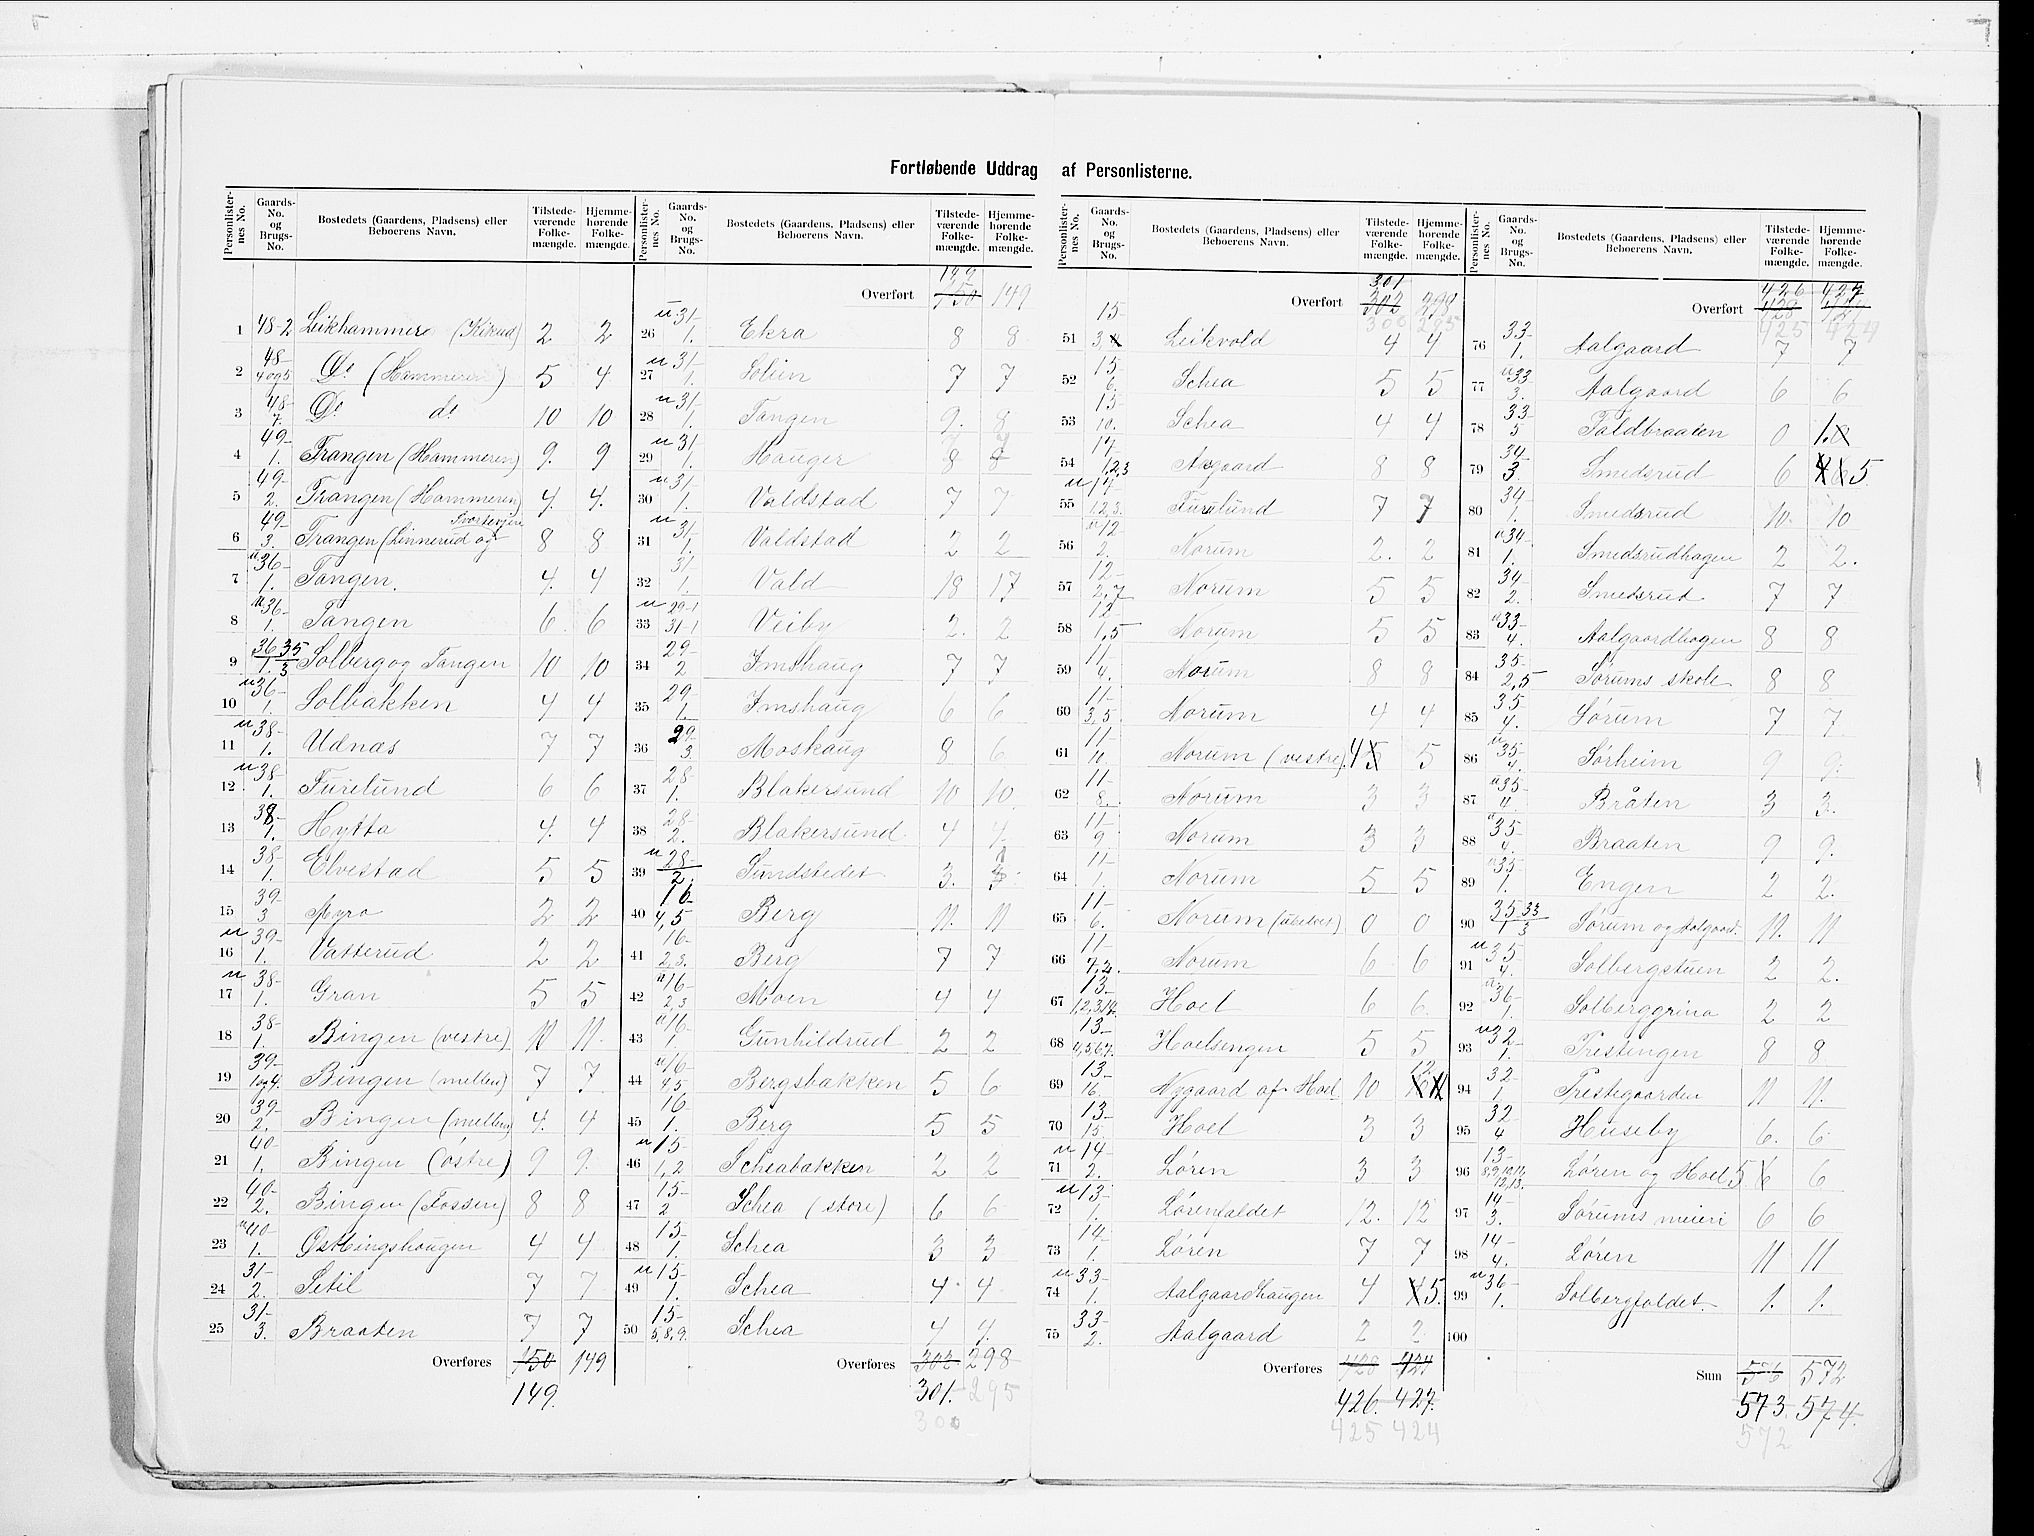 Fortløbende Uddrag af Personlisterne.
Personlister-nes No. | Gaards-No. og Brugs-No. | Bostedets (Gaardens, Pladsens) eller Beboerens Navn. | Tilstede-værende Folke-mængde. | Hjemme-hørende Folke-mængde.
1 48-2 Leikhammer (Kikud) 2 2
2 48- 4 og 5 Do (Hammeren) 5 4
3 48- 7. Do do 10 10
4 49- 1. Trangen (Hammeren) 9. 9
5 49- 2. Trangen (Hammeren) 4. 4.
6 49- 3. Trangen (Linnerud og 8 8
7 u36- 1. Tangen. 4. 4
8 u36- 1. Tangen 6 6
9 36 35 1. 3 Solberg og Tangen 10 10
10 u36- 1. Solbakken 4 4
11 u38- 1. Udnæs 7 7
12 u38- 1. Furulund 6 6
13 38- 1. Hytta 4. 4
14 38- 1. Elvestad 5 5
15 39- 3 Myra 2 2
16 u39- 1. Vatterud 2 2
17 u38- 1. Gran 5 5
18 38- 1. Bingen (vestre) 11 11.
19 39- 1 og 4. Bingen (mellem) 7 7
20 39- 2. Bingen (mellem) 4. 4
21 40- 1. Bingen (østre) 9 9
22 40- 2. Bingen (Fossen) 8 8
23 u40- 1. Østbingshaugen 4 4
24 31- 2. Setil 7 7
25 31- 3. Braaten 7 7
Overføres 150 149
149.
Personlister-nes No. | Gaards-No. og Brugs-No. | Bostedets (Gaardens, Pladsens) eller Beboerens Navn. | Tilstede-værende Folke-mængde. | Hjemme-hørende Folke-mængde.
149
Overført 150 149
26 u31- 1. Ekra 8 8
27 u31- 1. Solien 7 7
28 u31- 1. Tangen 9. 8
29 u31- 1. Hauger 8 8
30 u31- 1. Valdstad 7 7
31 u31- 1. Valdstad 2 2
32 31- 1. Vald 18 17
33 u29-1 31-1 Veiby 2. 2
34 29- 2 Imshaug 7 7
35 29- 1. Imshaug 6 6
36 29- 3. Moshaug 8 6
37 28- 1. Blakersund 10 10.
38 28- 2. Blakersund 4 4.
39 u28- 2. Sundstedet 3. 3
40 16- 4,5 Berg 11. 11
41 16- 2,3. Berg 7 7
42 u16- 2,3 Moen 4 4
43 u16- 1. Gunhildrud 2 2
44 u16- 4,5 Bergsbakken 5 6
45 16- 1. Berg 5 5
46 u15- 1,2 Scheabakken 2 2
47 15- 2 Schea (store) 6 6
48 15- 1. Schea 3 3
49 u15- 1. Schea 4 4
50 15- 5,8,9. Schea 4 4.
Overføres 302 298
301. 295
300
Personlister-nes No. | Gaards-No. og Brugs-No. | Bostedets (Gaardens, Pladsens) eller Beboerens Navn. | Tilstede-værende Folke-mængde. | Hjemme-hørende Folke-mængde.
301
Overført 302 298
300 295
51 15- 3 Leikvold 4 4
52 15- 6. Schea 5 5
53 15- 10. Schea 4 4
54 14- 1,2,3 Asgaard 8 8
55 u14- 1,2,3. Furulund 7 7
56 u12 2. Norum 2. 2
57 12- 2,7 Norum 5 5
58 12- 1,5 Norum 5 5
59 11- 4. Norum 8 8
60 11- 3,5. Norum 4 4
61 11- 10. Norum (vestre). 4 5 5
62 11- 8. Norum 3 3
63 11- 9. Norum 3 3
64 11- 1. Norum 5 5
65 11- 6. Norum (ubeboet) 0 0
66 11- 7,2. Norum 6 6
67 13- 1,2,3,14. Hoel 6 6
68 13- 4,5,6,7. Hoelsengen 5 5
69 13- 16. Nygaard af Hoel 10 12.
70 13- 15. Hoel 3 3
71 u14- 2. Løren 3 3
72 u13- 1. Lørenfaldet 12. 12
73 14- 1. Løren 7 7
74 u33- 1. Aalgaardhaugen 4 4 5.
75 33- 2. Aalgaard 2 2
Overføres 428 424
426. 427.
425 424
Personlister-nes No. | Gaards-No. og Brugs-No. | Bostedets (Gaardens, Pladsens) eller Beboerens Navn. | Tilstede-værende Folke-mængde. | Hjemme-hørende Folke-mængde.
426 427
Overført 428 424
425 424
76 33- 1. Aalgaard 7 7
77 u33- 3. Aalgaard 6 6
78 33- 5 Faldbraaten 0 1.
79 34- 3. Smedsrud 6 5.
80 34- 1. Smedsrud 10. 10
81 u34- 1. Smedsrudhagen 2 2.
82 34- 2. Smedsrud 7 7
83 u33- 4. Aalgaardhagen 8 8
84 35- 2,5 Sørums skole 8 8
85 35- 4. Sørum 7 7.
86 u35- 4. Sørheim 9 9.
87 u35- 4. Bråten 3 3.
88 u35- 4. Braaten 9 9.
89 u35- 1. Engen 2 2.
90 35 33 1 3 Sørum og Aalgaard. 11. 11
91 u35 4. Solbergstuen 2 2.
92 u36- 1. Solberggrina 2 2
93 u32- 1. Prestengen 8 8
94 32- 1. Prestegaarden 11 11.
95 32- 4 Huseby 6. 6
96 13- 8,9,10,11, 12,13. Løren og Hoel 5 6 6
97 14- 3. Sørums meieri 6 6
98 14- 4. Løren 11 11
99 u36- 1. Solbergfaldet. 1. 1.
100
Sum 576 572
573. 574.
572